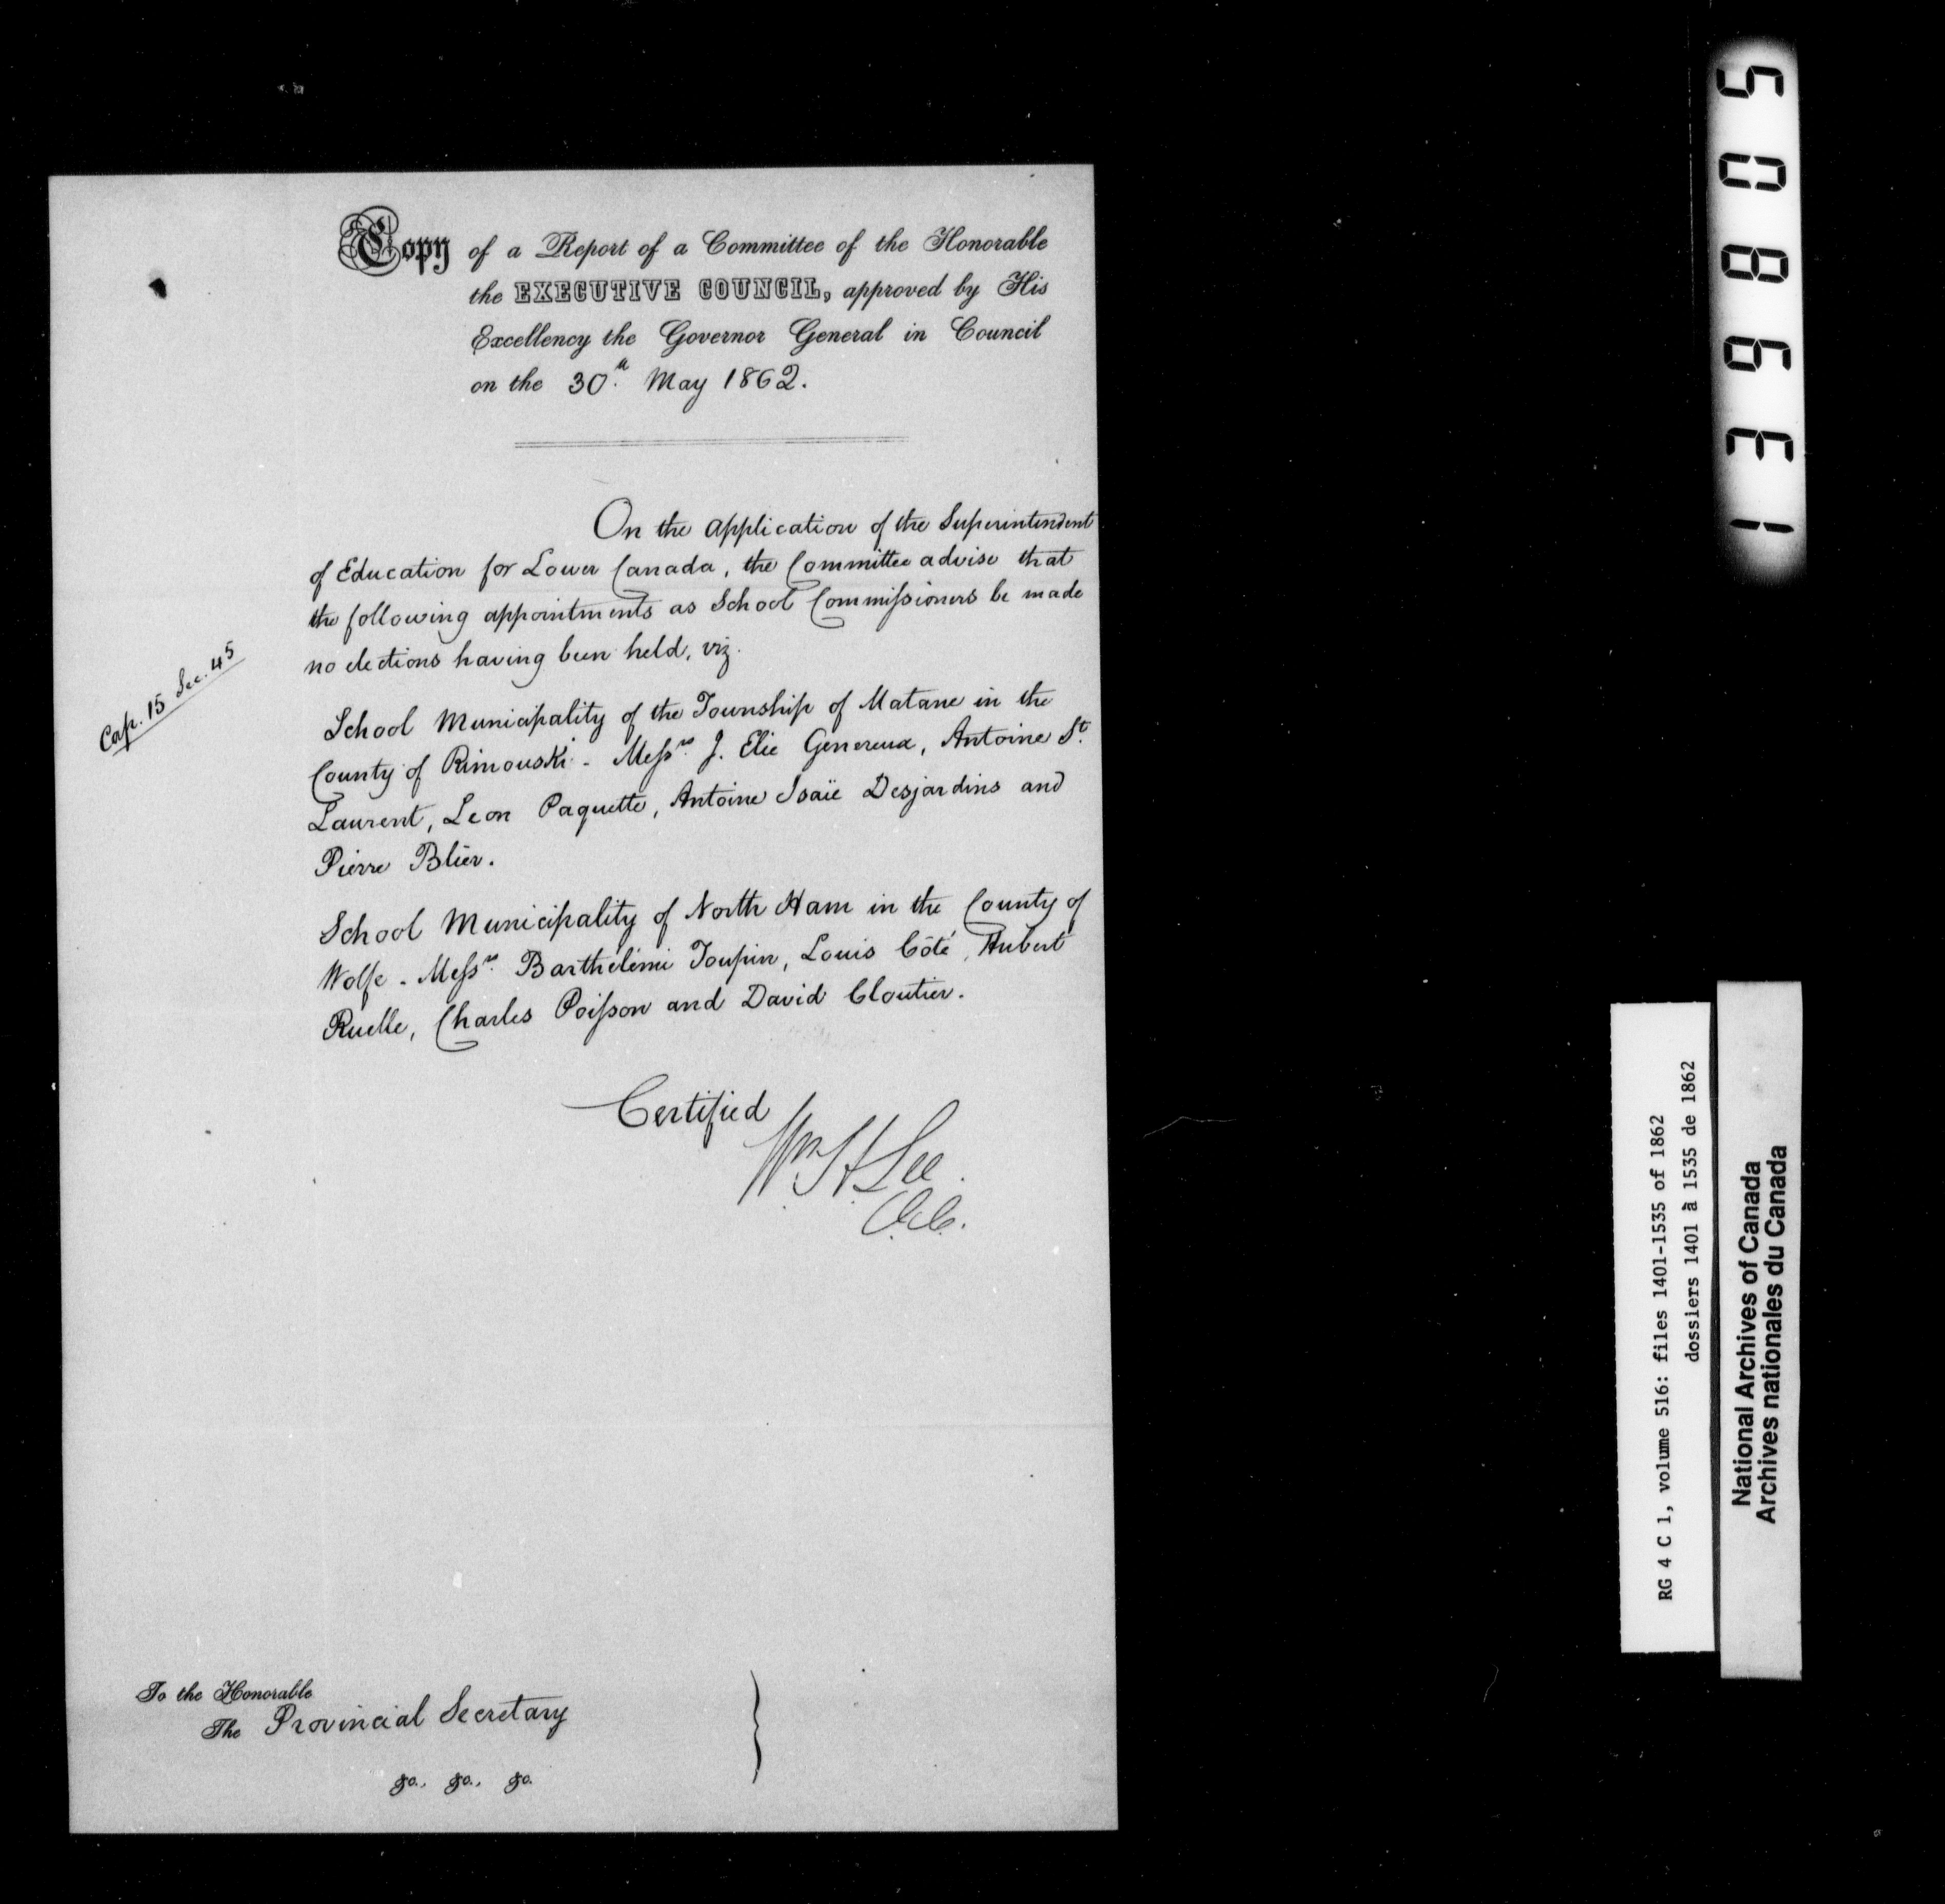 Copy of a Report of a Committee of the Honorable
the EXECUTIVE COUNCIL, approved by His
Excellency the Governor General in Council
on the 30th May 1862.
On the application of the Superintendent
of Education for Lower Canada, the Committee advise that
the following appointments as School Commissioners be made
no elections having been held, viz.
Cap. 15 Sec. 45
School Municipality of the Township of Matane in the
County of Rimouski - Messrs. J. Elie Genereux, Antoine St.
Laurent, Leon Paquette, Antoine Isaïe Desjardins and
Pierre Blier.
School Municipality of North Ham in the County of
Wolfe - Messrs. Barthélimi Toupin, Louis Côté, Hubert
Ruelle, Charles Poisson and David Cloutier.
Certified
Wm H Lee
C.E.C.
To the Honorable
The Provincial Secretary
&c., &c., &c.
50896E1
RG 4 C 1, volume 516: files 1401-1535 of 1862
dossiers 1401 à 1535 de 1862
National Archives of Canada
Archives nationales du Canada